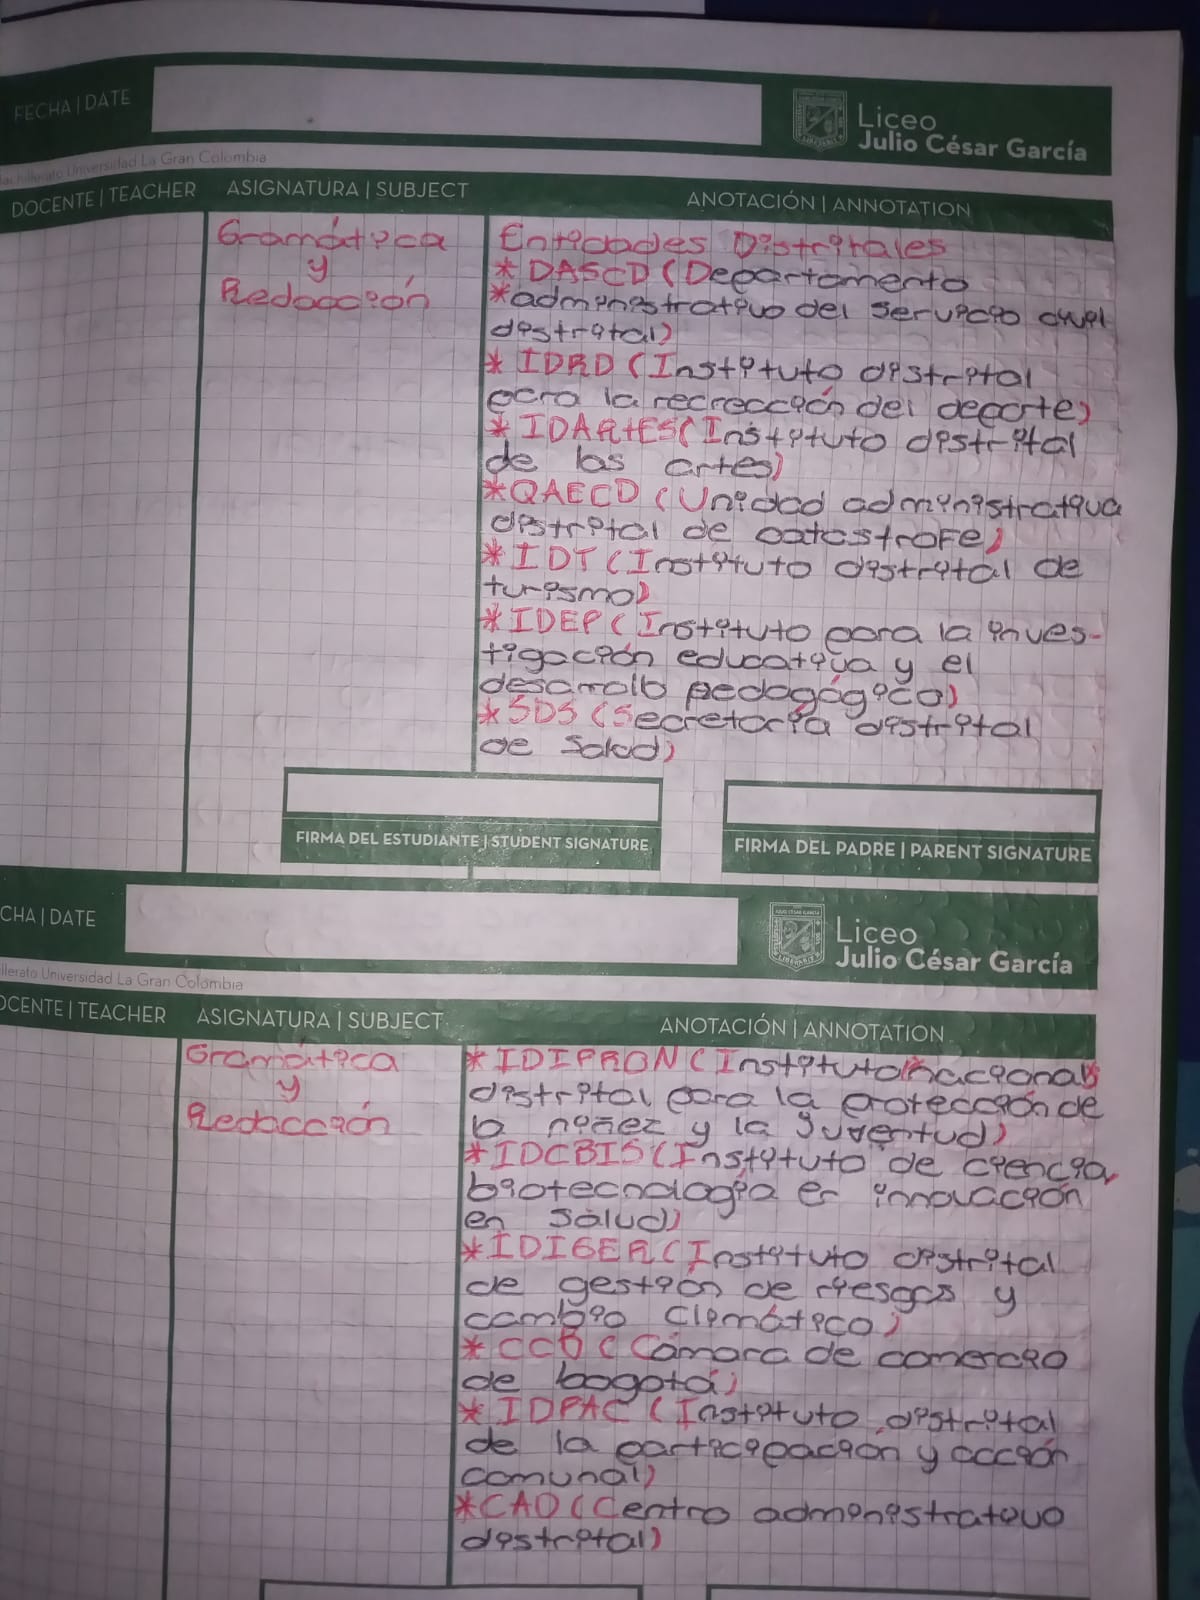 FECHA | DATE
Liceo
Julio César García
Bachillerato Universidad La Gran Colombia
DOCENTE | TEACHER ASIGNATURA | SUBJECT ANOTACIÓN | ANNOTATION
Gramática
y
Redacción
Entidades Distritales
* DASCD (Departamento
*administrativo del servicio civil
distrital)
* IDRD (Instituto distrital
para la recreación del deporte)
* IDARtES (Instituto distrital
de las artes)
*QAECD (Unidad administrativa
distrital de catastrofe)
*IDT (Instituto distrital de
turismo)
*IDEP (Instituto para la inves-
tigación educativa y el
desarrollo pedagógico)
*SDS (Secretaría distrital
de Salud)
FIRMA DEL ESTUDIANTE | STUDENT SIGNATURE
FIRMA DEL PADRE | PARENT SIGNATURE
CHA | DATE
JULIO CÉSAR GARCÍA
Liceo
Julio César García
llerato Universidad La Gran Colombia
OCENTE | TEACHER ASIGNATURA | SUBJECT ANOTACIÓN | ANNOTATION
Gramática
y
Redacción
* IDIPRON (Instituto nacional
distrital para la protección de
la niñez y la Juventud)
*IDCBIS (Instituto de ciencia,
biotecnología en innovación
en Salud)
*IDIGER (Instituto distrital
de gestión de riesgos y
cambio Climático)
* CCB (Cámara de comercio
de bogotá)
* IDPAC (Instituto distrital
de la participación y acción
comunal)
*CAD (Centro administrativo
distrital)